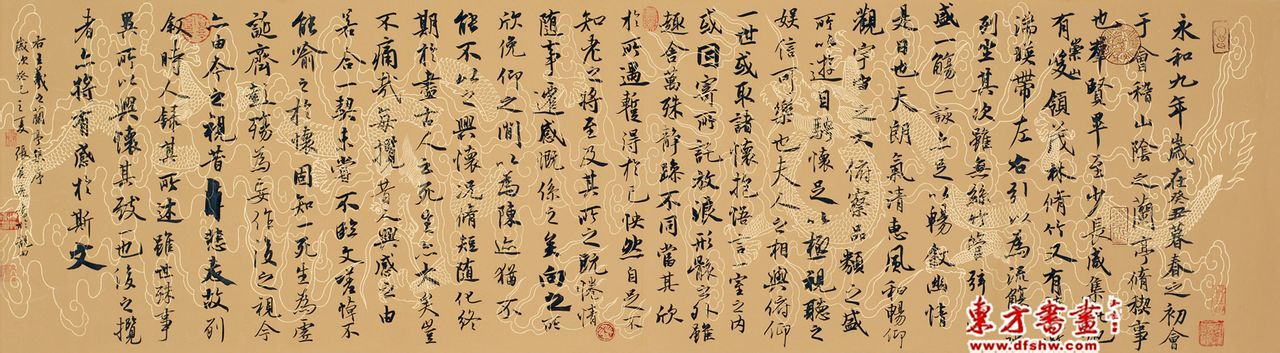 永和九年歲在癸丑暮春之初會
于會稽山陰之蘭亭脩稧事
也群賢畢至少長咸集此地
有崇山峻領茂林脩竹又有
湍暎帶左右引以為流觴
列坐其次雖無絲竹管弦
盛一觴一詠亦足以暢敘幽情
是日也天朗氣清惠風和暢仰
觀宇宙之大俯察品類之盛
所以遊目騁懷足以極視聽之
娛信可樂也夫人之相與俯仰
一世或取諸懷抱悟言一室之內
或因寄所託放浪形骸之外雖
趣舍萬殊静躁不同當其欣
於所遇暫得於己怏然自足不
知老之將至及其所之既惓情
随事遷感慨係之矣向之所
欣俛仰之間以為陳迹猶不
能不以之興懷況脩短随化終
期於盡古人云死生亦大矣豈
不痛哉每攬昔人興感之由
若合一契未嘗不臨文嗟悼不
能喻之於懷固知一死生為虛
誕齊彭殤為妄作後之視今
亦由今之視昔悲夫故列
敘時人錄其所述雖世殊事
異所以興懷其致一也後之攬
者亦將有感於斯文
右王羲之蘭亭集序
歲次癸巳之夏張
東方書畫
www.dfshw.com